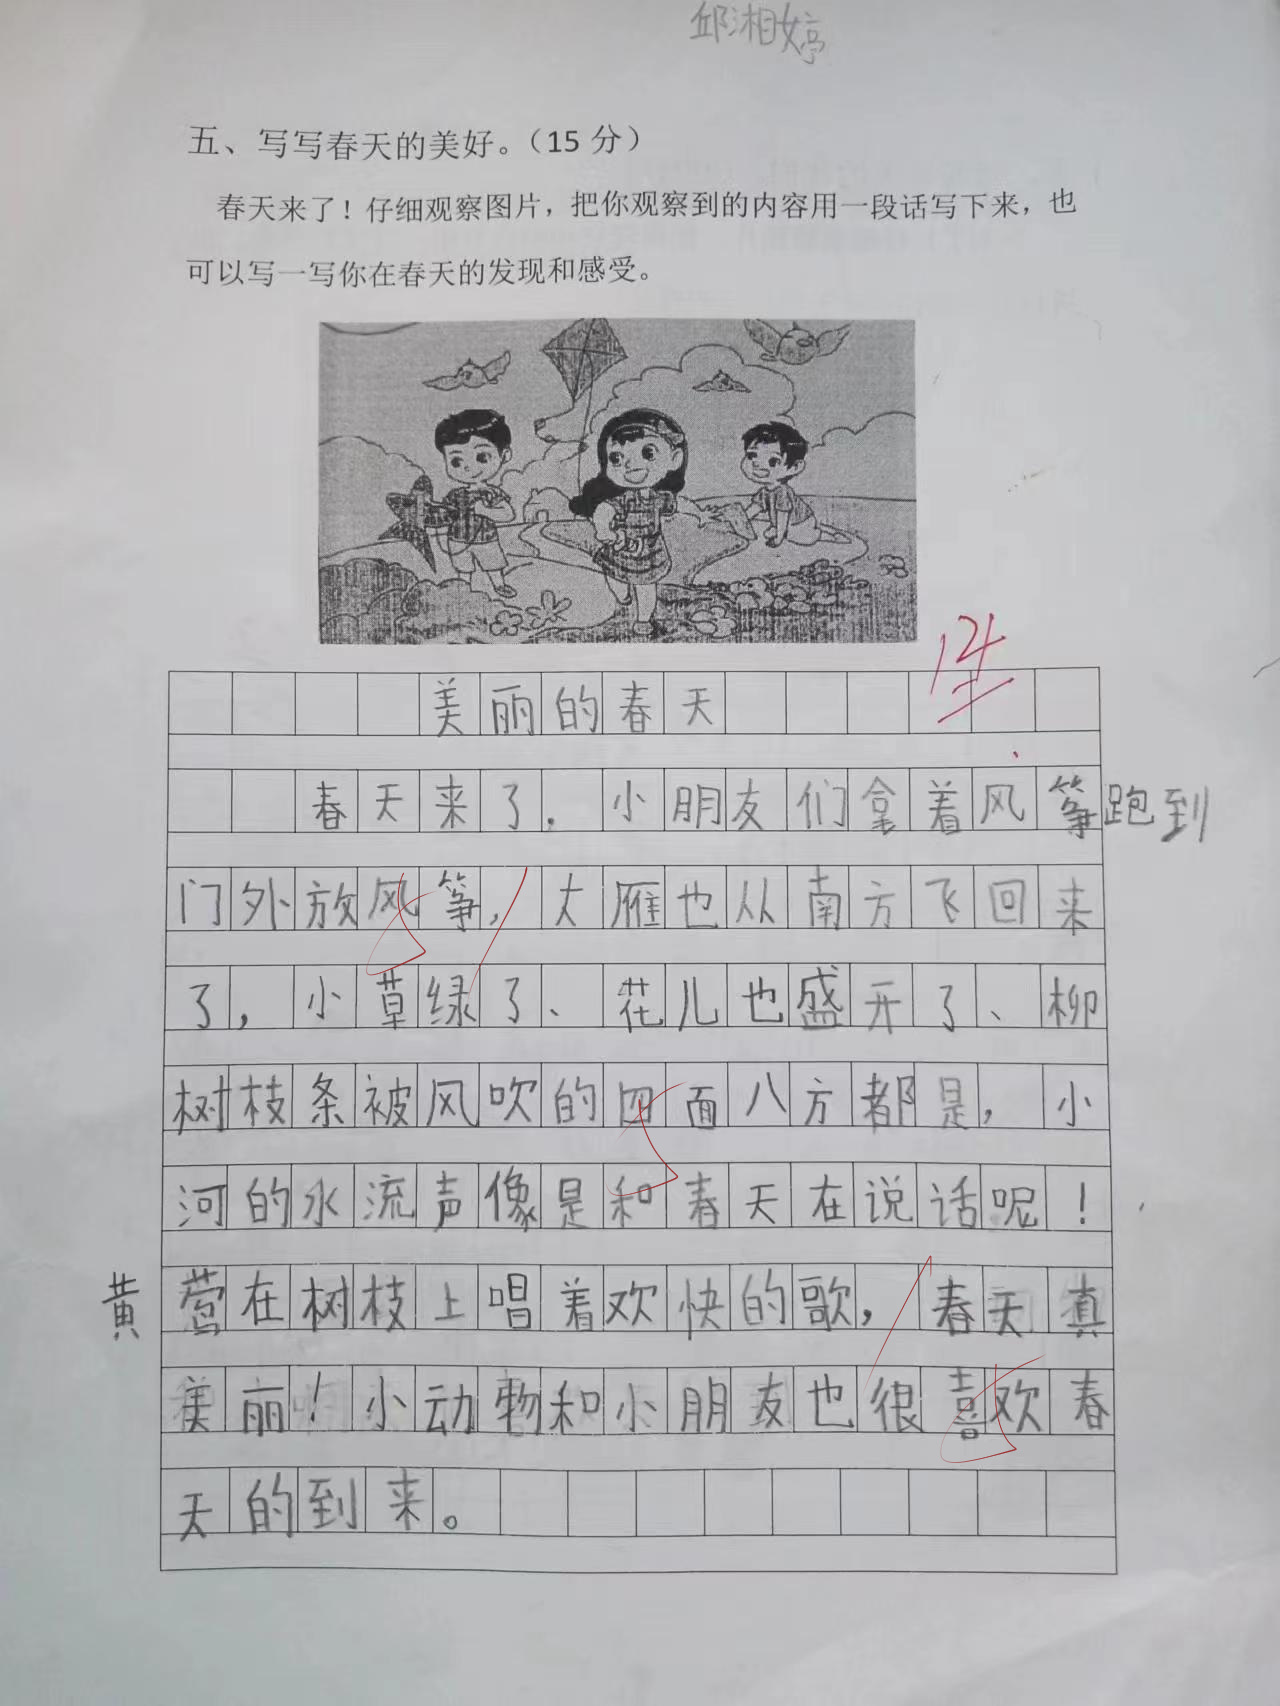 邱湘婷
五、写写春天的美好。（15 分）
春天来了！仔细观察图片，把你观察到的内容用一段话写下来，也
可以写一写你在春天的发现和感受。
14
美丽的春天
春天来了，小朋友们拿着风筝跑到
门外放风筝，大雁也从南方飞回来
了，小草绿了、花儿也盛开了、柳
树枝条被风吹的四面八方都是，小
河的水流声像是和春天在说话呢！
黄莺在树枝上唱着欢快的歌，春天真
美丽！小动物和小朋友也很喜欢春
天的到来。